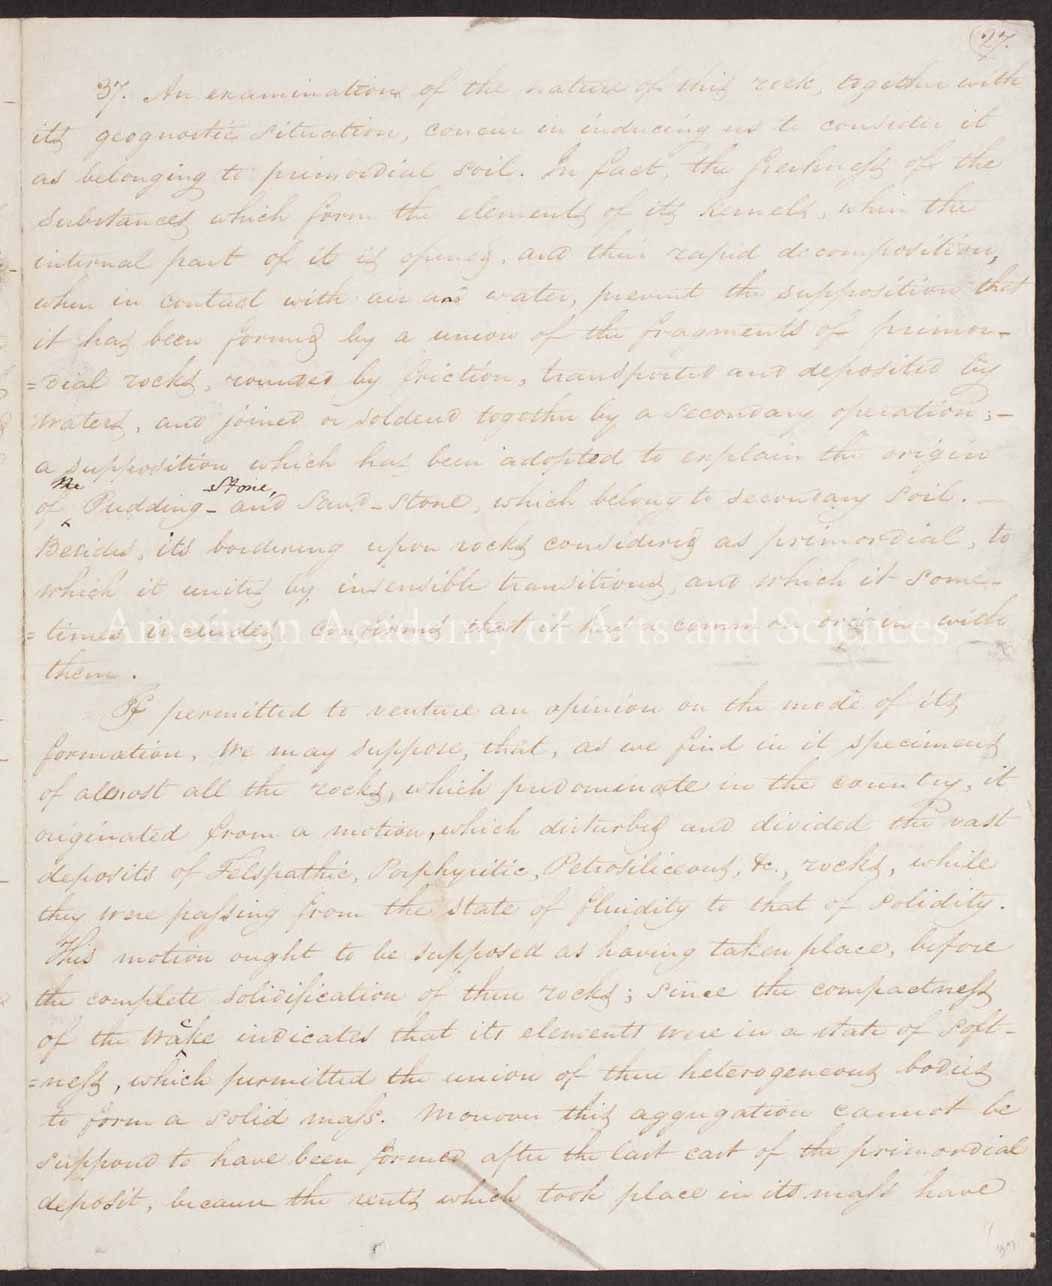 27.
37. An examination of the nature of this rock, together with
its geognostic situation, concur in inducing us to consider it
as belonging to primordial soil. In fact, the freshness of the
substances which form the elements of its kernels, when the
internal part of it is opened, and their rapid decomposition,
when in contact with air and water, prevent the supposition that
it has been formed by a union of the fragments of primor-
=dial rocks, rounded by friction, transported and deposited by
waters, and joined or soldered together by a secondary operation;—
a supposition which has been adopted to explain the origin
of the Pudding-stone, and Sand-stone, which belong to secondary soil.—
Besides, its bordering upon rocks considered as primordial, to
which it unites by insensible transitions, and which it some-
=times includes, convinces that it has a common origin with
them.
If permitted to venture an opinion on the mode of its
formation, We may suppose, that, as we find in it specimens
of almost all the rocks, which predominate in the country, it
originated from a motion, which disturbed and divided the vast
deposits of Felspathic, Porphyritic, Petrosiliceous, &c., rocks, while
they were passing from the state of fluidity to that of solidity.
This motion ought to be supposed as having taken place, before
the complete solidification of these rocks; since the compactness
of the wacke indicates that its elements were in a state of soft-
=ness, which permitted the union of these heterogeneous bodies
to form a solid mass. Moreover this aggregation cannot be
supposed to have been formed after the last cast of the primordial
deposit, because the rents which took place in its mass have
American Academy of Arts and Sciences